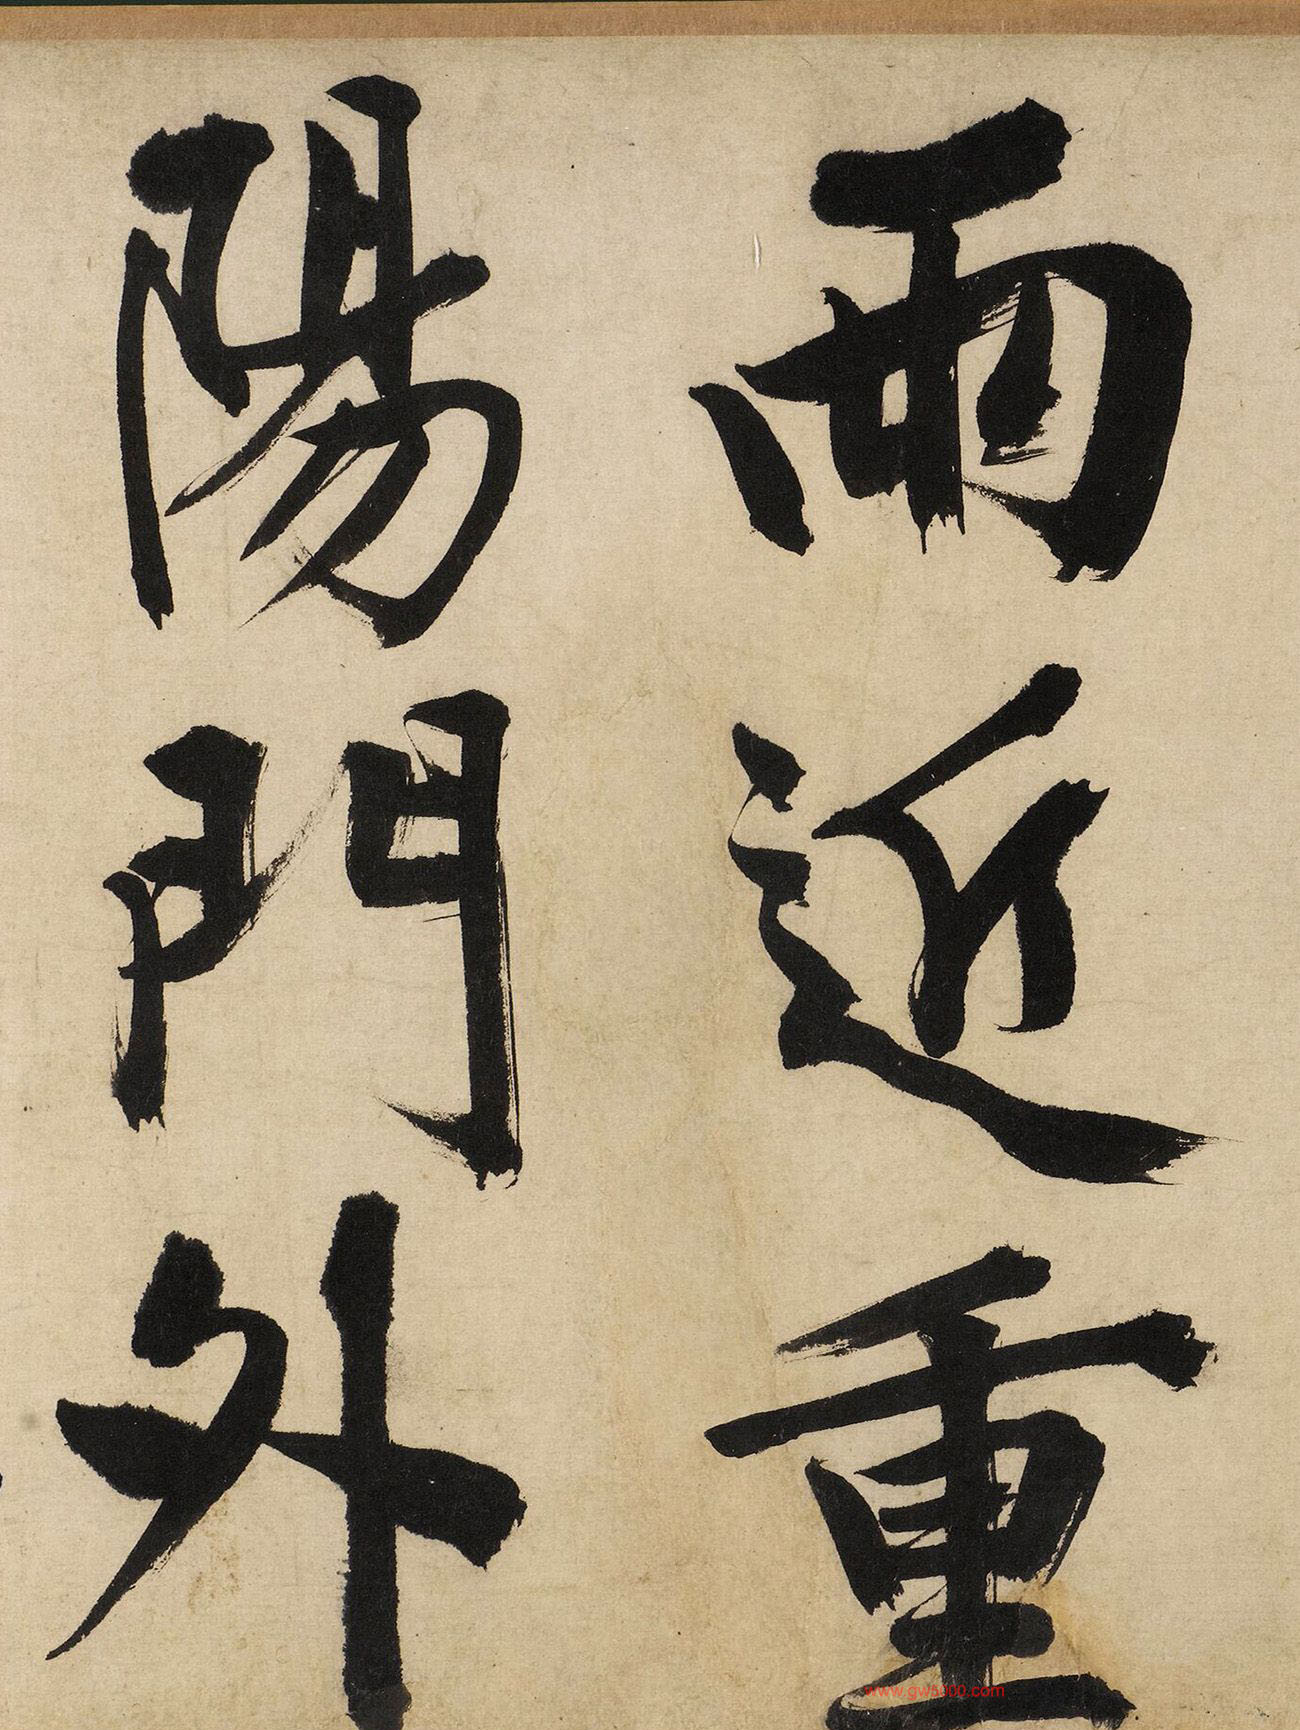 雨近重
陽門外
www.gw5000.com